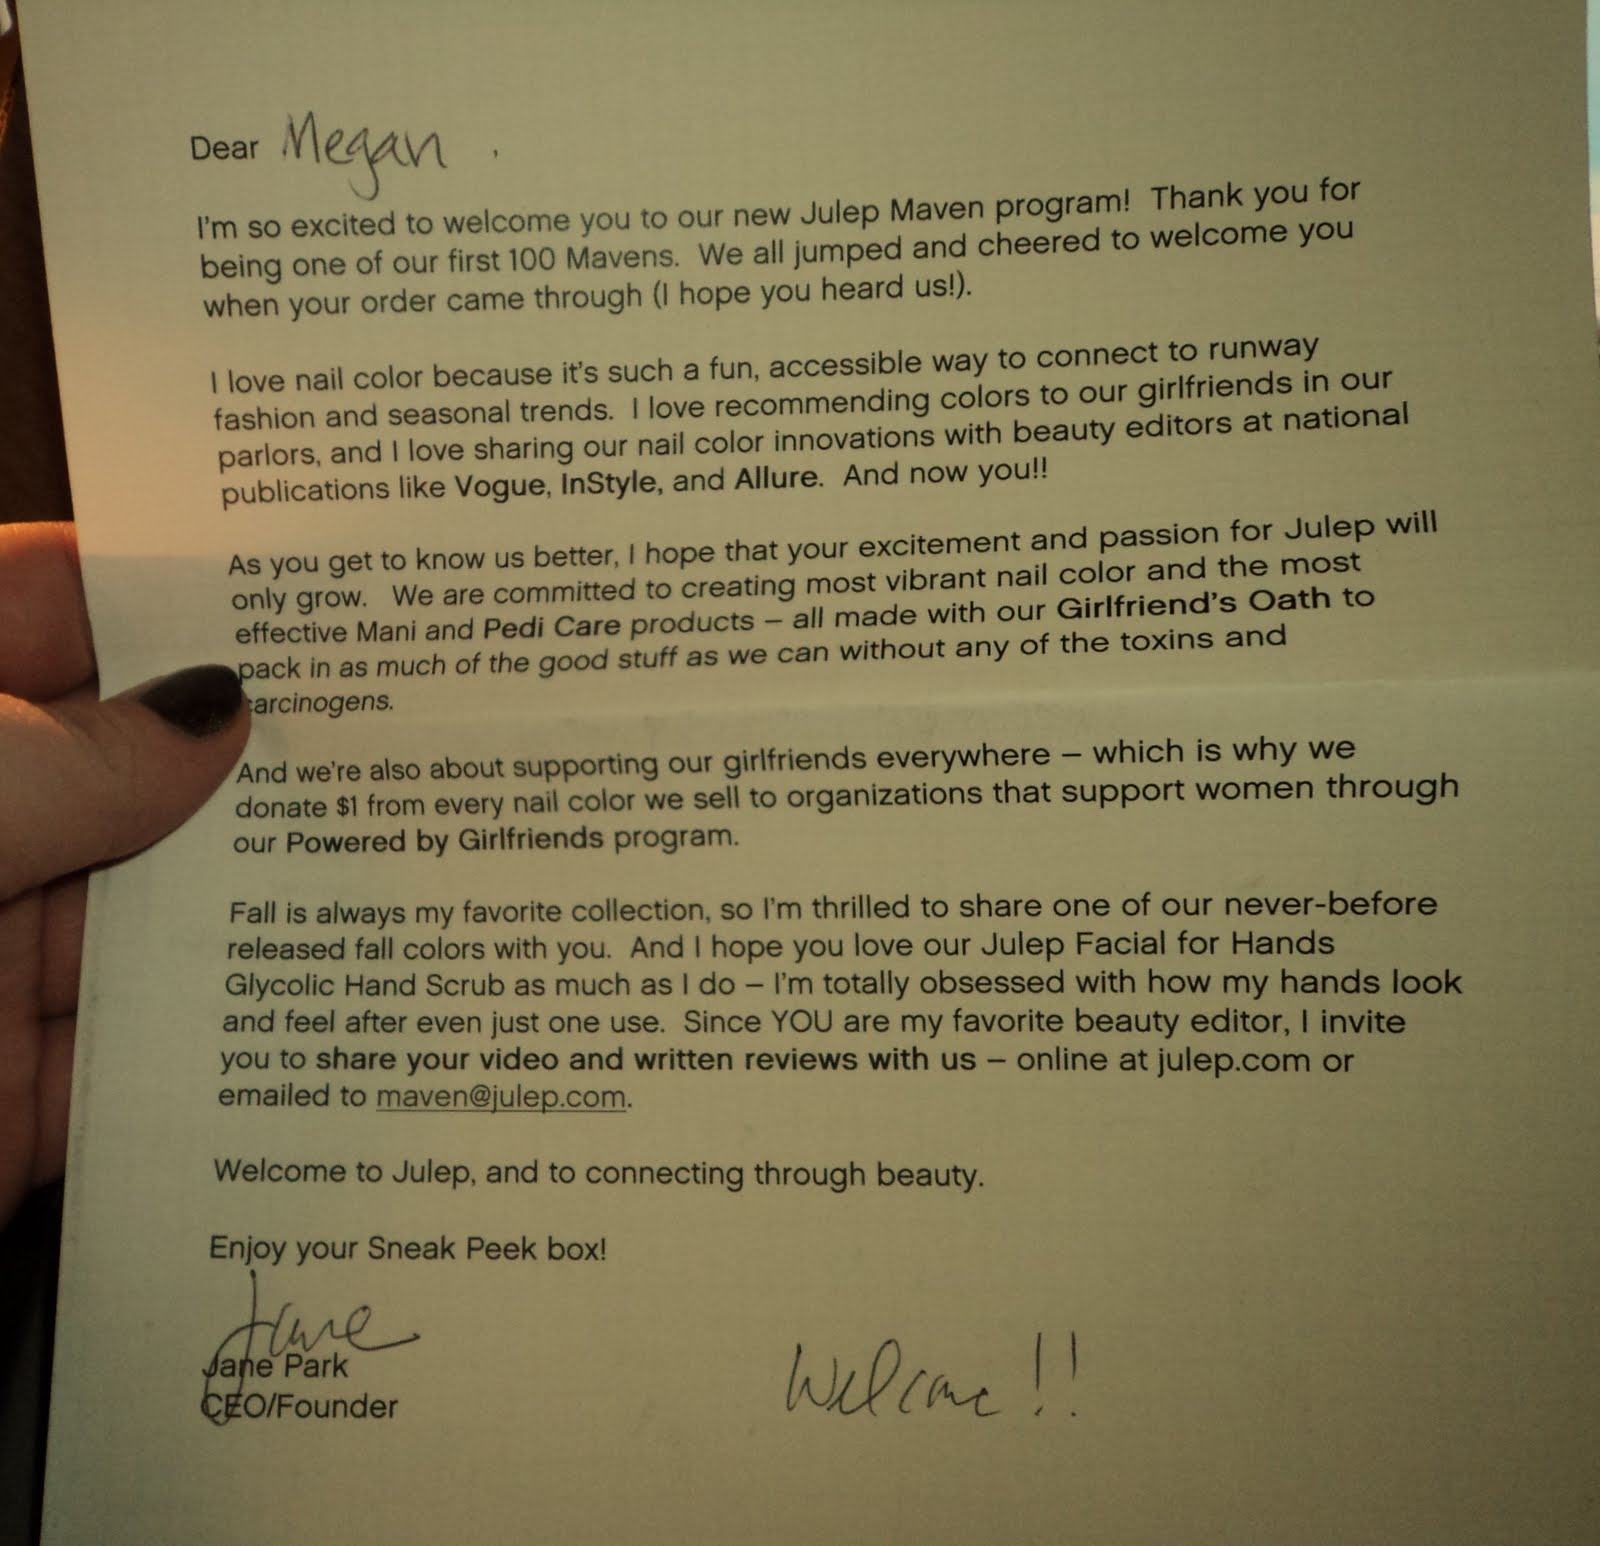 Dear Megan,
I'm so excited to welcome you to our new Julep Maven program!  Thank you for
being one of our first 100 Mavens.  We all jumped and cheered to welcome you
when your order came through (I hope you heard us!).
I love nail color because it's such a fun, accessible way to connect to runway
fashion and seasonal trends.  I love recommending colors to our girlfriends in our
parlors, and I love sharing our nail color innovations with beauty editors at national
publications like Vogue, InStyle, and Allure.  And now you!!
As you get to know us better, I hope that your excitement and passion for Julep will
only grow.  We are committed to creating most vibrant nail color and the most
effective Mani and Pedi Care products – all made with our Girlfriend's Oath to
pack in as much of the good stuff as we can without any of the toxins and
carcinogens.
And we're also about supporting our girlfriends everywhere – which is why we
donate $1 from every nail color we sell to organizations that support women through
our Powered by Girlfriends program.
Fall is always my favorite collection, so I'm thrilled to share one of our never-before
released fall colors with you.  And I hope you love our Julep Facial for Hands
Glycolic Hand Scrub as much as I do – I'm totally obsessed with how my hands look
and feel after even just one use.  Since YOU are my favorite beauty editor, I invite
you to share your video and written reviews with us – online at julep.com or
emailed to maven@julep.com.
Welcome to Julep, and to connecting through beauty.
Enjoy your Sneak Peek box!
Jane
Jane Park
CEO/Founder
Welcome!!